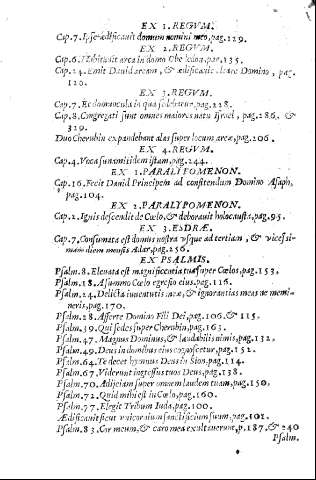 EX 1. REGVM.
Cap. 7. Ipse ædificauit domum nomini meo, pag. 129.
EX 2. REGVM.
Cap. 6. Habitauit arca in domo Obededon, pag. 135.
Cap. 24. Emit Dauid aream, & ædificauit altare Domino, pag.
120.
EX 3. REGVM.
Cap. 7. Et domuncula in qua sedebatur, pag. 228.
Cap. 8. Congregati sunt omnes maiores natu Israel, pag. 286. &
319.
Duo Cherubin expandebant alas super locum arcæ, pag. 206.
EX 4. REGVM.
Cap. 4. Voca sunamitidem istam, pag. 244.
EX 1. PARALYPOMENON.
Cap. 16. Fecit Dauid Principem ad confitendum Domino Asaph,
pag. 104.
EX 2. PARALYPOMENON.
Cap. 2. Ignis descendit de Cœlo, & deuorauit holocausta, pag. 95.
EX 3. ESDRÆ.
Cap. 7. Consumata est domus nostra vsque ad tertiam, & vicesi-
mam diem mensis Adar, pag. 256.
EX PSALMIS.
Psalm. 8. Eleuata est magnificentia tua super Cœlos, pag. 153.
Psalm. 18. A summo Cœlo egressio eius, pag. 116.
Psalm. 24. Delicta iuuentutis meæ, & ignorantias meas ne memi-
neris, pag. 170.
Psalm. 28. Afferte Domino Filij Dei, pag. 106. & 115.
Psalm. 39. Qui sedes super Cherubin, pag. 163.
Psalm. 47. Magnus Dominus, & laudabilis nimis, pag. 132.
Psalm. 49. Deus in domibus eius cognoscetur, pag. 152.
Psalm. 64. Te decet hymnus Deus in Sion, pag. 114.
Psalm. 67. Viderunt ingressus tuos Deus, pag. 138.
Psalm. 70. Adijciam super omnem laudem tuam, pag. 150.
Psalm. 72. Quid mihi est in Cœlo, pag. 160.
Psalm. 77. Elegit Tribum Iuda, pag. 100.
Ædificauit sicut vnicornium sanctificium suum, pag. 101.
Psalm. 83. Cor meum, & caro mea exultauerunt, p. 187. & 240
Psalm.